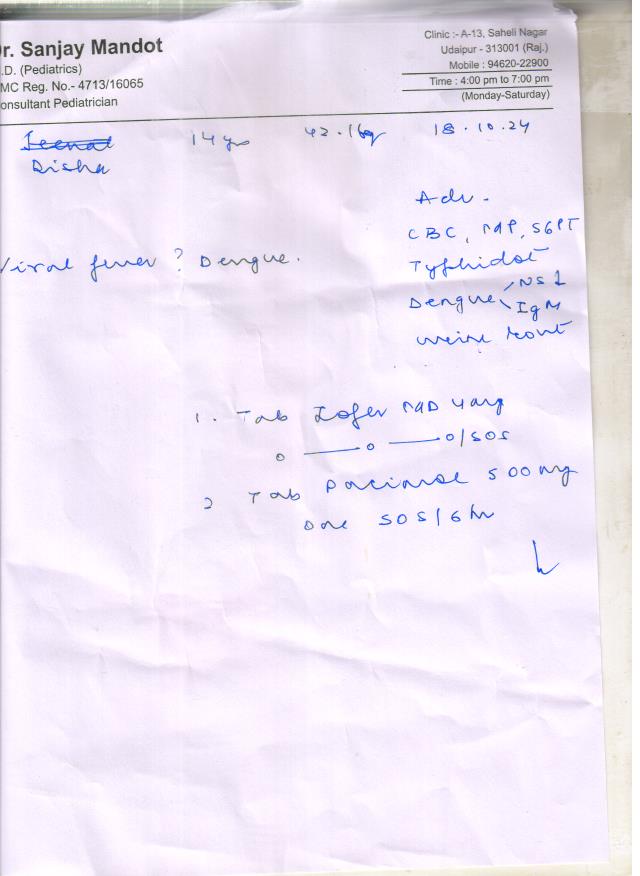 Dr. Sanjay Mandot
.D. (Pediatrics)
MC Reg. No.- 4713/16065
onsultant Pediatrician
Clinic :- A-13, Saheli Nagar
Udaipur - 313001 (Raj.)
Mobile : 94620-22900
Time : 4:00 pm to 7:00 pm
(Monday-Saturday)
14 yrs 42.1kg 18.10.24
Disha
Adv.
CBC, MP, SGPT
Viral fever ? Dengue.
Typhidot
Dengue NS1
IgM
1. Tab MD 4mg
o — o — o/SOS
2 Tab Pacimol 500mg
One SOS/6hr